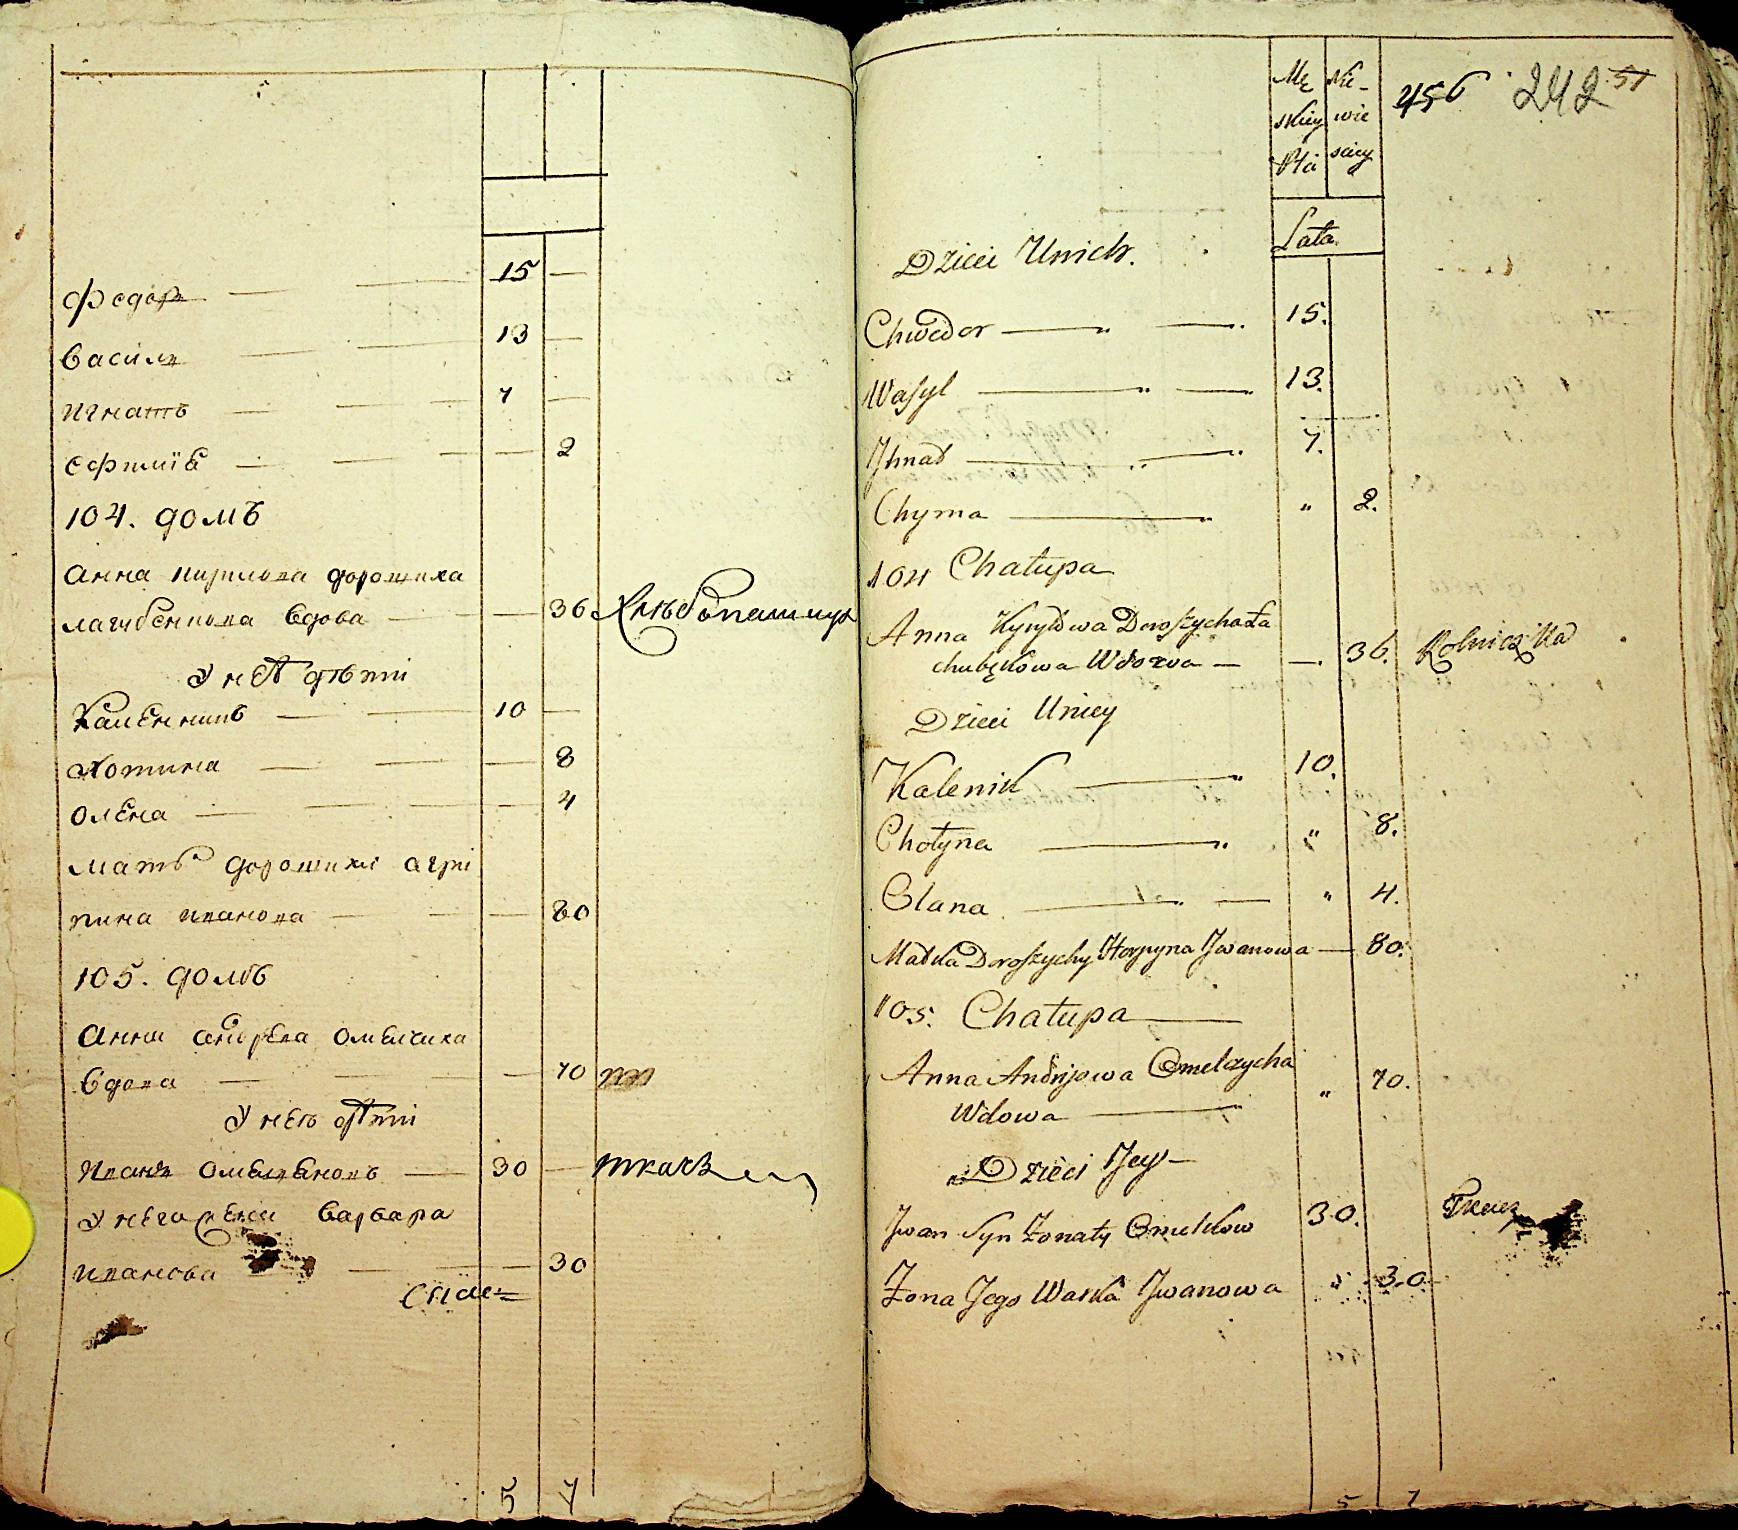 15
Федоръ
13
Василь
7
Игнатъ
2
Ефимія
104. домъ
Анна кирилова дорошиха
лагубенкова вдова 36 Хлѣбопашица
У неѣ дѣти
Каленникъ 10
Хотина 8
Олена 4
Мать дорошихи агри
пина иванова 80
105. домъ
Анна андреева омелчиха
вдова 70
У нею дѣти
Иванъ Омеляновъ 30 ткачъ
У него жена варвара
иванова 30
5 7
Mę Nie-
skiey wie
Płci sciey
456 242 51
Lata.
Dzieci Unich.
Chwedor 15.
Wasyl 13.
Jhnat 7.
Chyma " 2.
104 Chałupa
Anna Kyryłowa Doroszycha Ła
chubękowa Wdowa — —. 36. Rolniczka
Dzieci Uniey
Kalenik 10.
Chotyna " 8.
Olana " 4.
Matka Doroszychy Horpyna Jwanowa — 80.
105. Chałupa
Anna Andrijowa Omelczycha
Wdowa " 70.
Dzieci Jey
Jwan Syn Żonaty Omelkow 30. Tkacz
Żona Jego Warka Jwanowa " 30
5 7